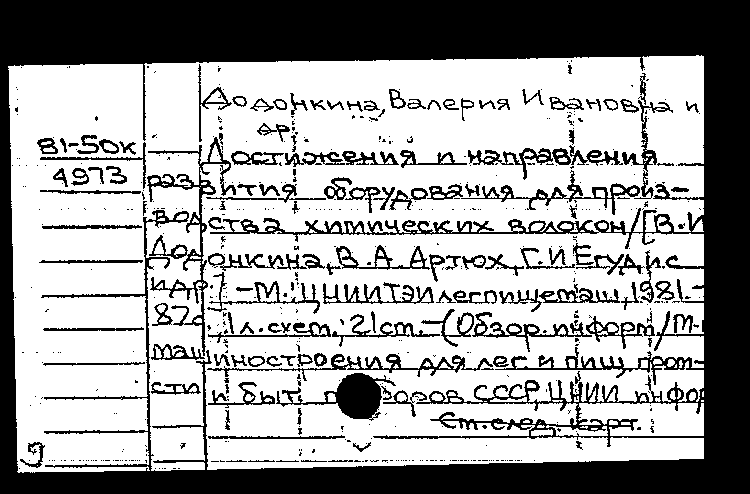 Додонкина, Валерия Ивановна и
др.
81-50к
4973
Достижения и направления
развития оборудования для произ-
водства химических волокон/[В.И
Додонкина, В.А. Артюх, Г.И Егудис
и др.] -М.: ЦНИИТЭИлегпищемаш, 1981.-
87с., 1л.схем.; 21см.-(Обзор. информ/М-
машиностроения для лег. и пищ. пром-
сти и быт. боров СССР, ЦНИИ инфор
См. след. карт.